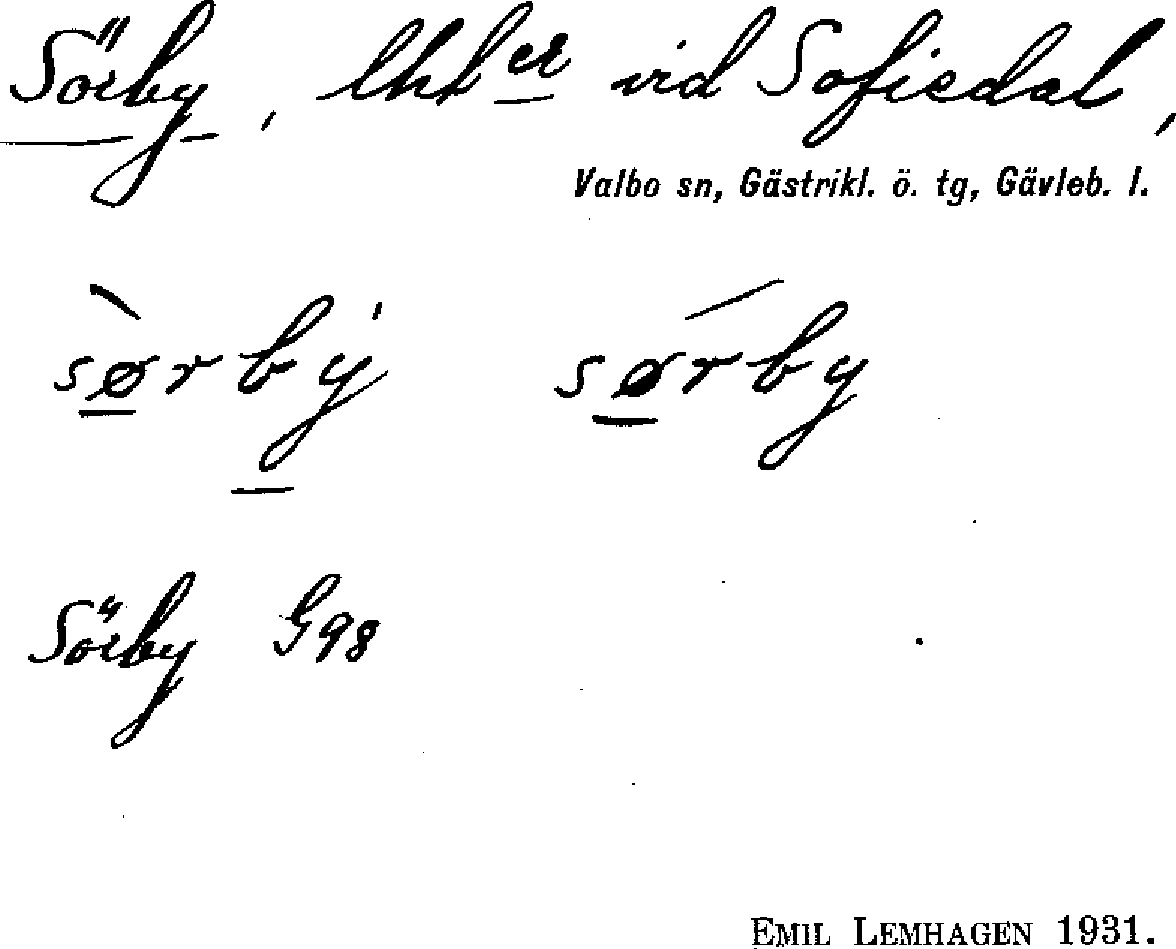 Sörby, lhber vid Sofiedal,
Valbo sn, Gästrikl. ö. tg, Gävleb. l.
sø̀rbý sǿrby
Sörby G98
EMIL LEMHAGEN 1931.